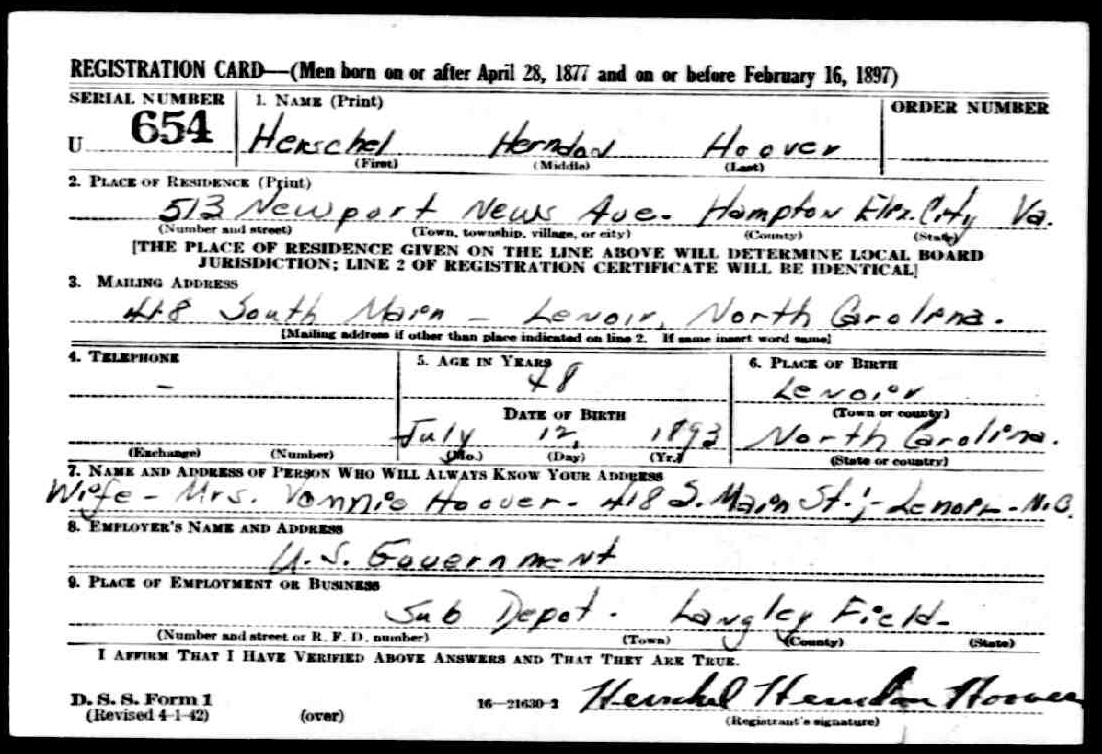 REGISTRATION CARD—(Men born on or after April 28, 1877 and on or before February 16, 1897)
SERIAL NUMBER 1. NAME (Print) ORDER NUMBER
U 654 Herschel Herndon Hoover
(First) (Middle) (Last)
2. PLACE OF RESIDENCE (Print)
513 Newport News Ave. Hampton Eliz. City Va.
(Number and street) (Town, township, village, or city) (County) (State)
[THE PLACE OF RESIDENCE GIVEN ON THE LINE ABOVE WILL DETERMINE LOCAL BOARD
JURISDICTION; LINE 2 OF REGISTRATION CERTIFICATE WILL BE IDENTICAL]
3. MAILING ADDRESS
418 South Main - Lenoir, North Carolina.
[Mailing address if other than place indicated on line 2. If same insert word same]
4. TELEPHONE 5. AGE IN YEARS 6. PLACE OF BIRTH
- 48 Lenoir
DATE OF BIRTH (Town or county)
July 12, 1893 North Carolina.
(Exchange) (Number) (Mo.) (Day) (Yr.) (State or country)
7. NAME AND ADDRESS OF PERSON WHO WILL ALWAYS KNOW YOUR ADDRESS
Wife - Mrs. Vonnie Hoover - 418 S. Main St.; - Lenoir - N.C.
8. EMPLOYER'S NAME AND ADDRESS
U.S. Government
9. PLACE OF EMPLOYMENT OR BUSINESS
Sub Depot. Langley Field-
(Number and street or R. F. D. number) (Town) (County) (State)
I AFFIRM THAT I HAVE VERIFIED ABOVE ANSWERS AND THAT THEY ARE TRUE.
D. S. S. Form 1
(Revised 4-1-42) (over) 16—21630-2 Herschel Herndon Hoover
(Registrant's signature)